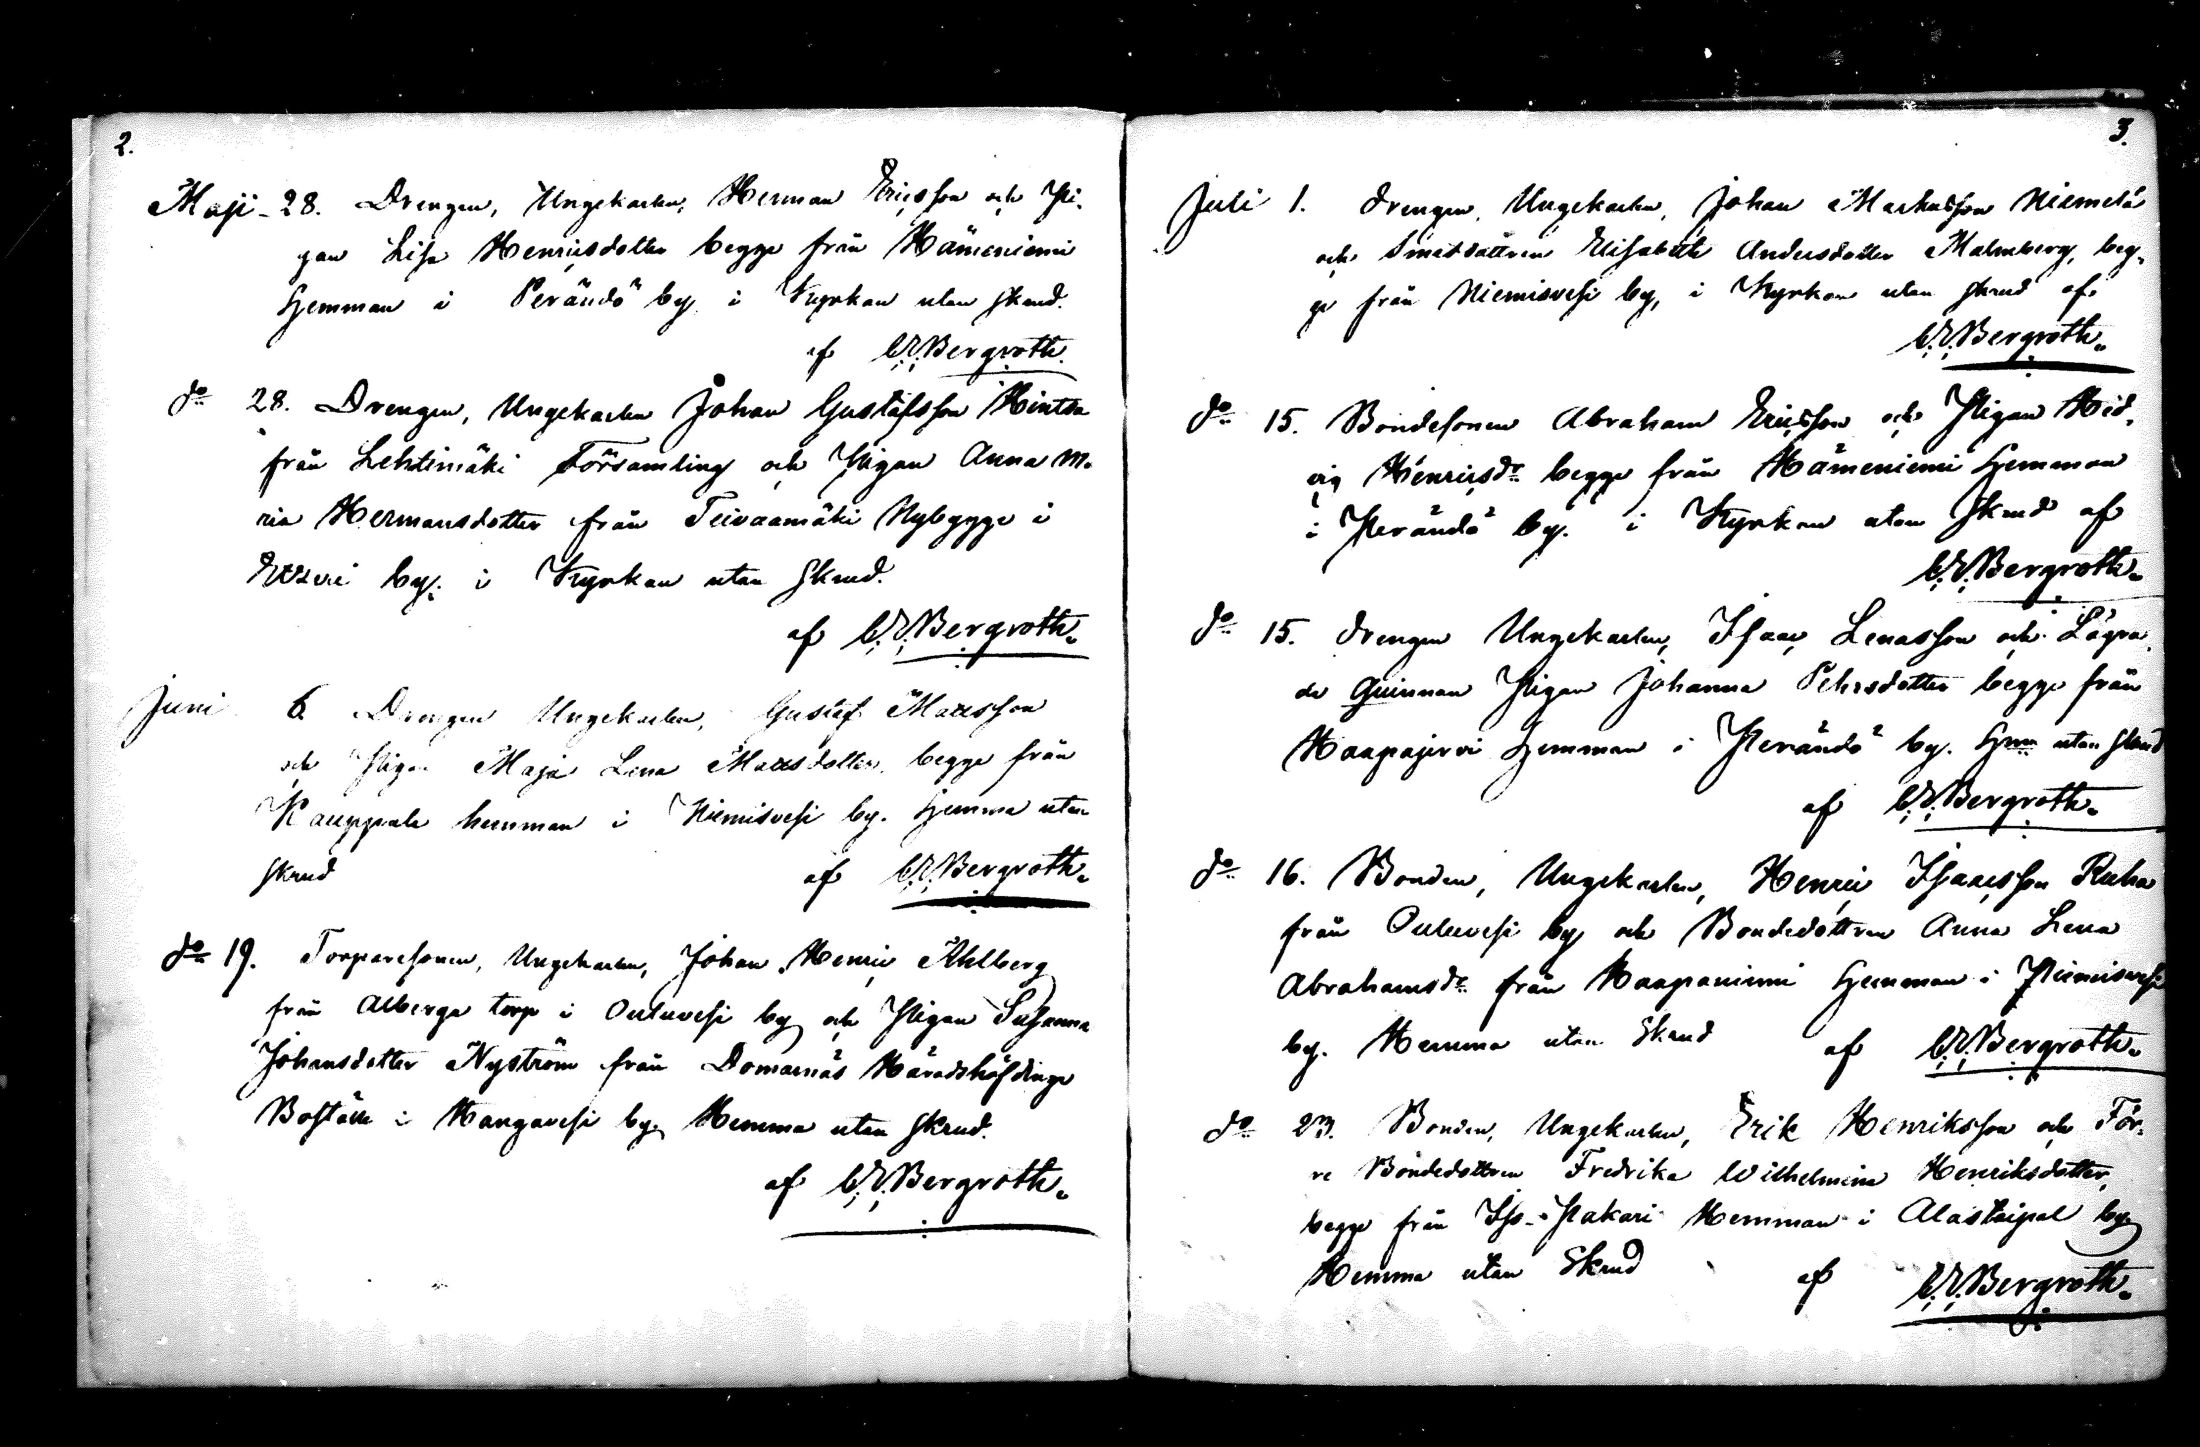 2.
Maji 28. Drengen, Ungekarlen, Herman Ericsson och Pi-
gan Lisa Henricsdotter begge från Hämeniemi
Hemman i Perändö by. i Kyrkan utan skrud.
af C. E. Bergroth.
do 28. Drengen, Ungekarlen Johan Gustafsson Hintsa
från Lehtimäki Församling och Pigan Anna Ma-
ria Hermansdotter från Teivaamäki Nybygge i
Etseri by. i Kyrkan utan Skrud.
af C. E. Bergroth.
Juni 6. Drengen Ungekarlen, Gustaf Mattsson
och Pigan Maja Lena Mattsdotter, begge från
Kauppala hemman i Niemisvesi by. Hemma utan
skrud af C. E. Bergroth.
do 19. Torparesonen, Ungekarlen, Johan Henric Ahlberg
från Alberga torp i Ouluvesi by och Pigan Susanna
Johansdotter Nyström från Domarnäs Häradshöfdinge
Boställe i Hangavesi by, Hemma utan skrud.
af C. E. Bergroth.
3.
Juli 1. Drengen, Ungekarlen, Johan Markusson Niemelä
och Smedsdottren Elisabeth Andersdotter Malmberg, beg-
ge från Niemisvesi by, i Kyrkan utan skrud af
C. E. Bergroth.
do 15. Bondesonen Abraham Ericsson och Pigan Hed-
vig Henricsdr begge från Hämeniemi Hemman
i Perändö by. i Kyrkan utan Skrud af
C. E. Bergroth.
do 15. Drengen Ungekarlen, Isaac Lenasson och Lägra-
de Quinnan Pigan Johanna Pehrsdotter begge från
Haapajervi Hemman i Perändö by. Hma utan skrud
af C. E. Bergroth.
do 16. Bonden, Ungekarlen, Henric Isaacsson Ruha
från Ouluvesi by och Bondedottren Anna Lena
Abrahamsdr från Haapaniemi Hemman i Niemisvesi
by. Hemma utan Skrud af C. E. Bergroth.
do 23. Bonden, Ungekarlen, Erik Henriksson och För-
re Bondedottren Fredrika Wilhelmina Henriksdotter,
begge från Iso-Pakari Hemman i Alastaipal by
Hemma utan Skrud af C. E. Bergroth.